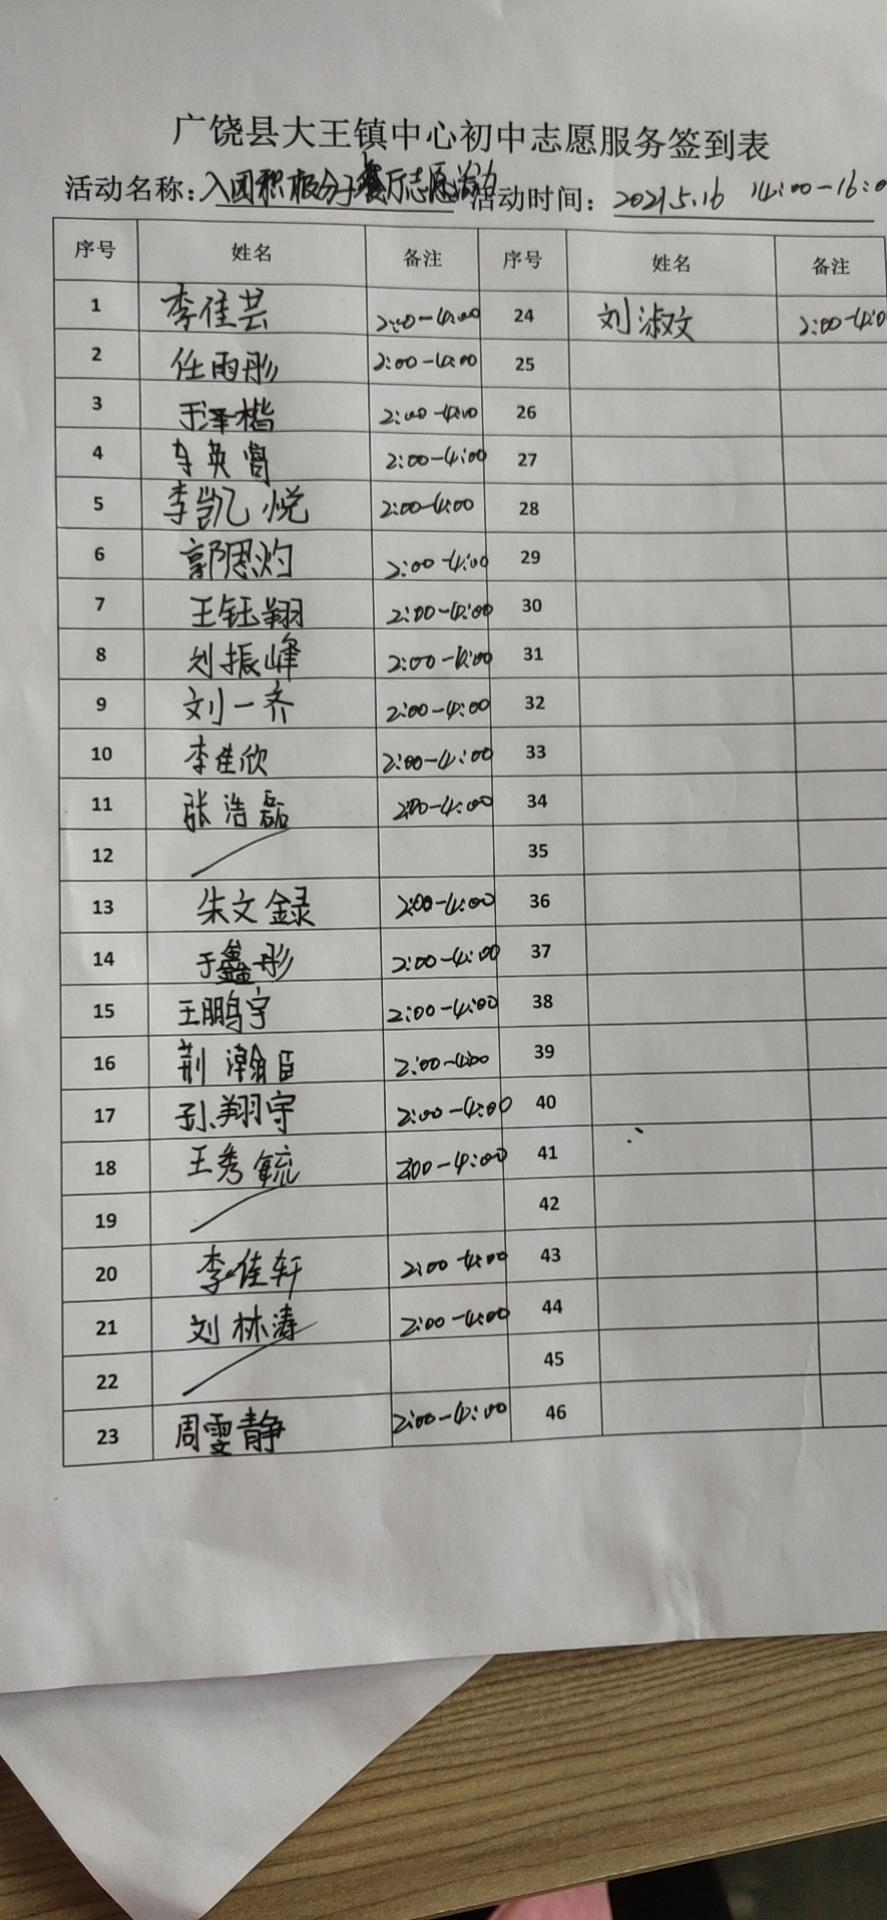 广饶县大王镇中心初中志愿服务签到表
活动名称：入团积极分子餐厅志愿活动 活动时间：2021.5.16 14:00-16:0
序号 姓名 备注 序号 姓名 备注
1 李佳芸 2:00-4:00 24 刘淑文 2:00-4:0
2 任雨彤 2:00-4:00 25
3 于泽楷 2:00-4:00 26
4 李英 2:00-4:00 27
5 李凯悦 2:00-4:00 28
6 郭恩灼 2:00-4:00 29
7 王钰翔 2:00-4:00 30
8 刘振峰 2:00-4:00 31
9 刘一齐 2:00-4:00 32
10 李佳欣 2:00-4:00 33
11 张浩磊 2:00-4:00 34
12 35
13 朱文録 2:00-4:00 36
14 于鑫彤 2:00-4:00 37
15 王鹏宇 2:00-4:00 38
16 荆瀚臣 2:00-4:00 39
17 孙翔宇 2:00-4:00 40
18 王秀毓 2:00-4:00 41
19 42
20 李佳轩 2:00-4:00 43
21 刘林涛 2:00-4:00 44
22 45
23 周雯静 2:00-4:00 46